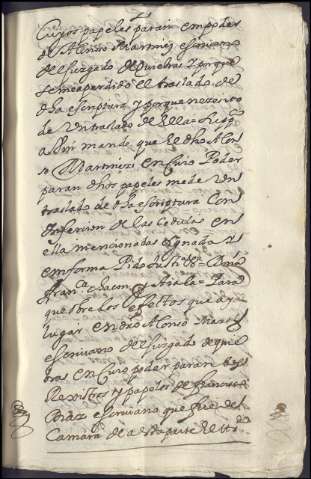 Cuyos papeles paran em poder
de Alonso Martinez escrivano
del Juzgado de quiebras y porque
se me a perdido el traslado de
dha escriptura y porque necesito
de un traslado de ella = Supco
a Vm mande que el dho Alon
so Martinez en cuio Poder
paran dhos papeles me de un
traslado de dha escriptura con
Inserion de las Cedulas en
ella mencionadas signada y
en forma Pido Justa =
franca chacon y Ayala = Para
que sobre los efectos que aya
lugar en dro Alonso martz
escrivano del Juzgado de quie
bras en cuyo poder paran los
Rexistros y papeles de francisco
Diaz escrivano que fue del
Camara de a esta parte el tto